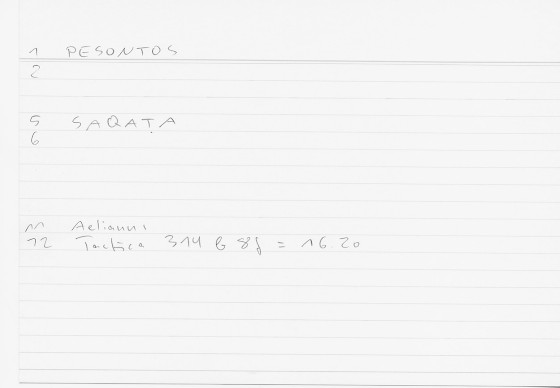 1 PESONTOS
2
5 SAQAṬA
6
11 Aelianus
12 Tactica 314 b 8f = 16.20